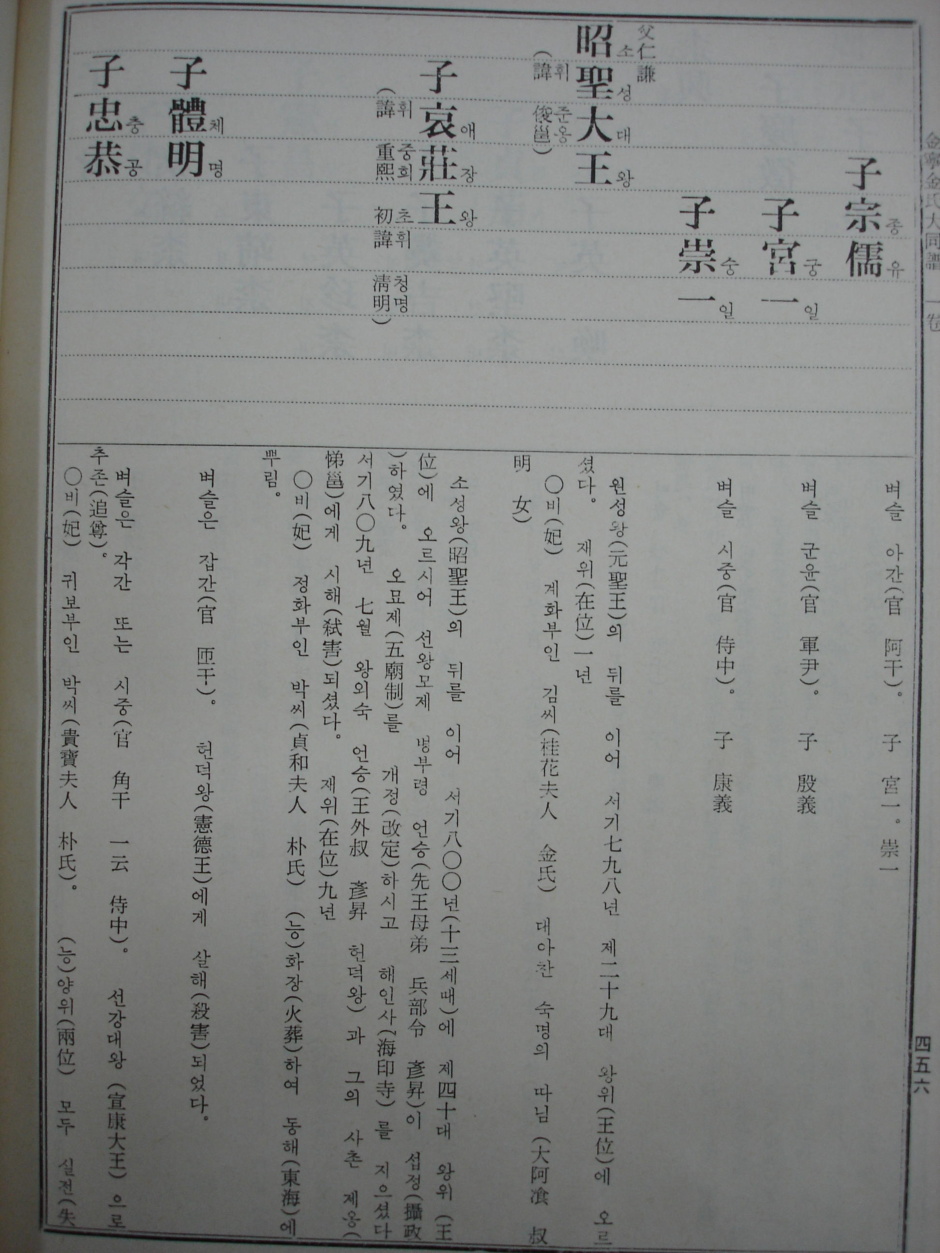 金寧金氏大同譜 一卷
四五六
子宗儒
종유
子宮一
궁일
子崇一
숭일
父仁謙
昭聖大王
소성대왕
(諱 俊邕)
휘 준옹
子哀莊王
애장왕
(諱 重熙 初諱 淸明)
휘 중희 초휘 청명
子體明
체명
子忠恭
충공
벼슬 아간(官 阿干)。 子 宮一。崇一
벼슬 군윤(官 軍尹)。 子 殷義
벼슬 시중(官 侍中)。 子 康義
원성왕(元聖王)의 뒤를 이어 서기七九八년 제二十九대 왕위(王位)에 오르
셨다。 재위(在位)一년
○비(妃) 계화부인 김씨(桂花夫人 金氏) 대아찬 숙명의 따님(大阿飡 叔
明 女)
소성왕(昭聖王)의 뒤를 이어 서기八○○년(十三세때)에 제四十대 왕위(王
位)에 오르시어 선왕모제 병부령 언승(先王母弟 兵部令 彥昇)이 섭정(攝政
)하였다。 오묘제(五廟制)를 개정(改定)하시고 해인사(海印寺)를 지으셨다
서기八○九년 七월 왕외숙 언승(王外叔 彥昇 헌덕왕)과 그의 사촌 제옹(
悌邕)에게 시해(弑害)되셨다。 재위(在位)九년
○비(妃) 정화부인 박씨(貞和夫人 朴氏) (능)화장(火葬)하여 동해(東海)에
뿌림。
벼슬은 갑간(官 匝干)。 헌덕왕(憲德王)에게 살해(殺害)되었다。
벼슬은 각간 또는 시중(官 角干 一云 侍中)。 선강대왕(宣康大王)으로
추존(追尊)。
○비(妃) 귀보부인 박씨(貴寶夫人 朴氏)。 (능)양위(兩位) 모두 실전(失